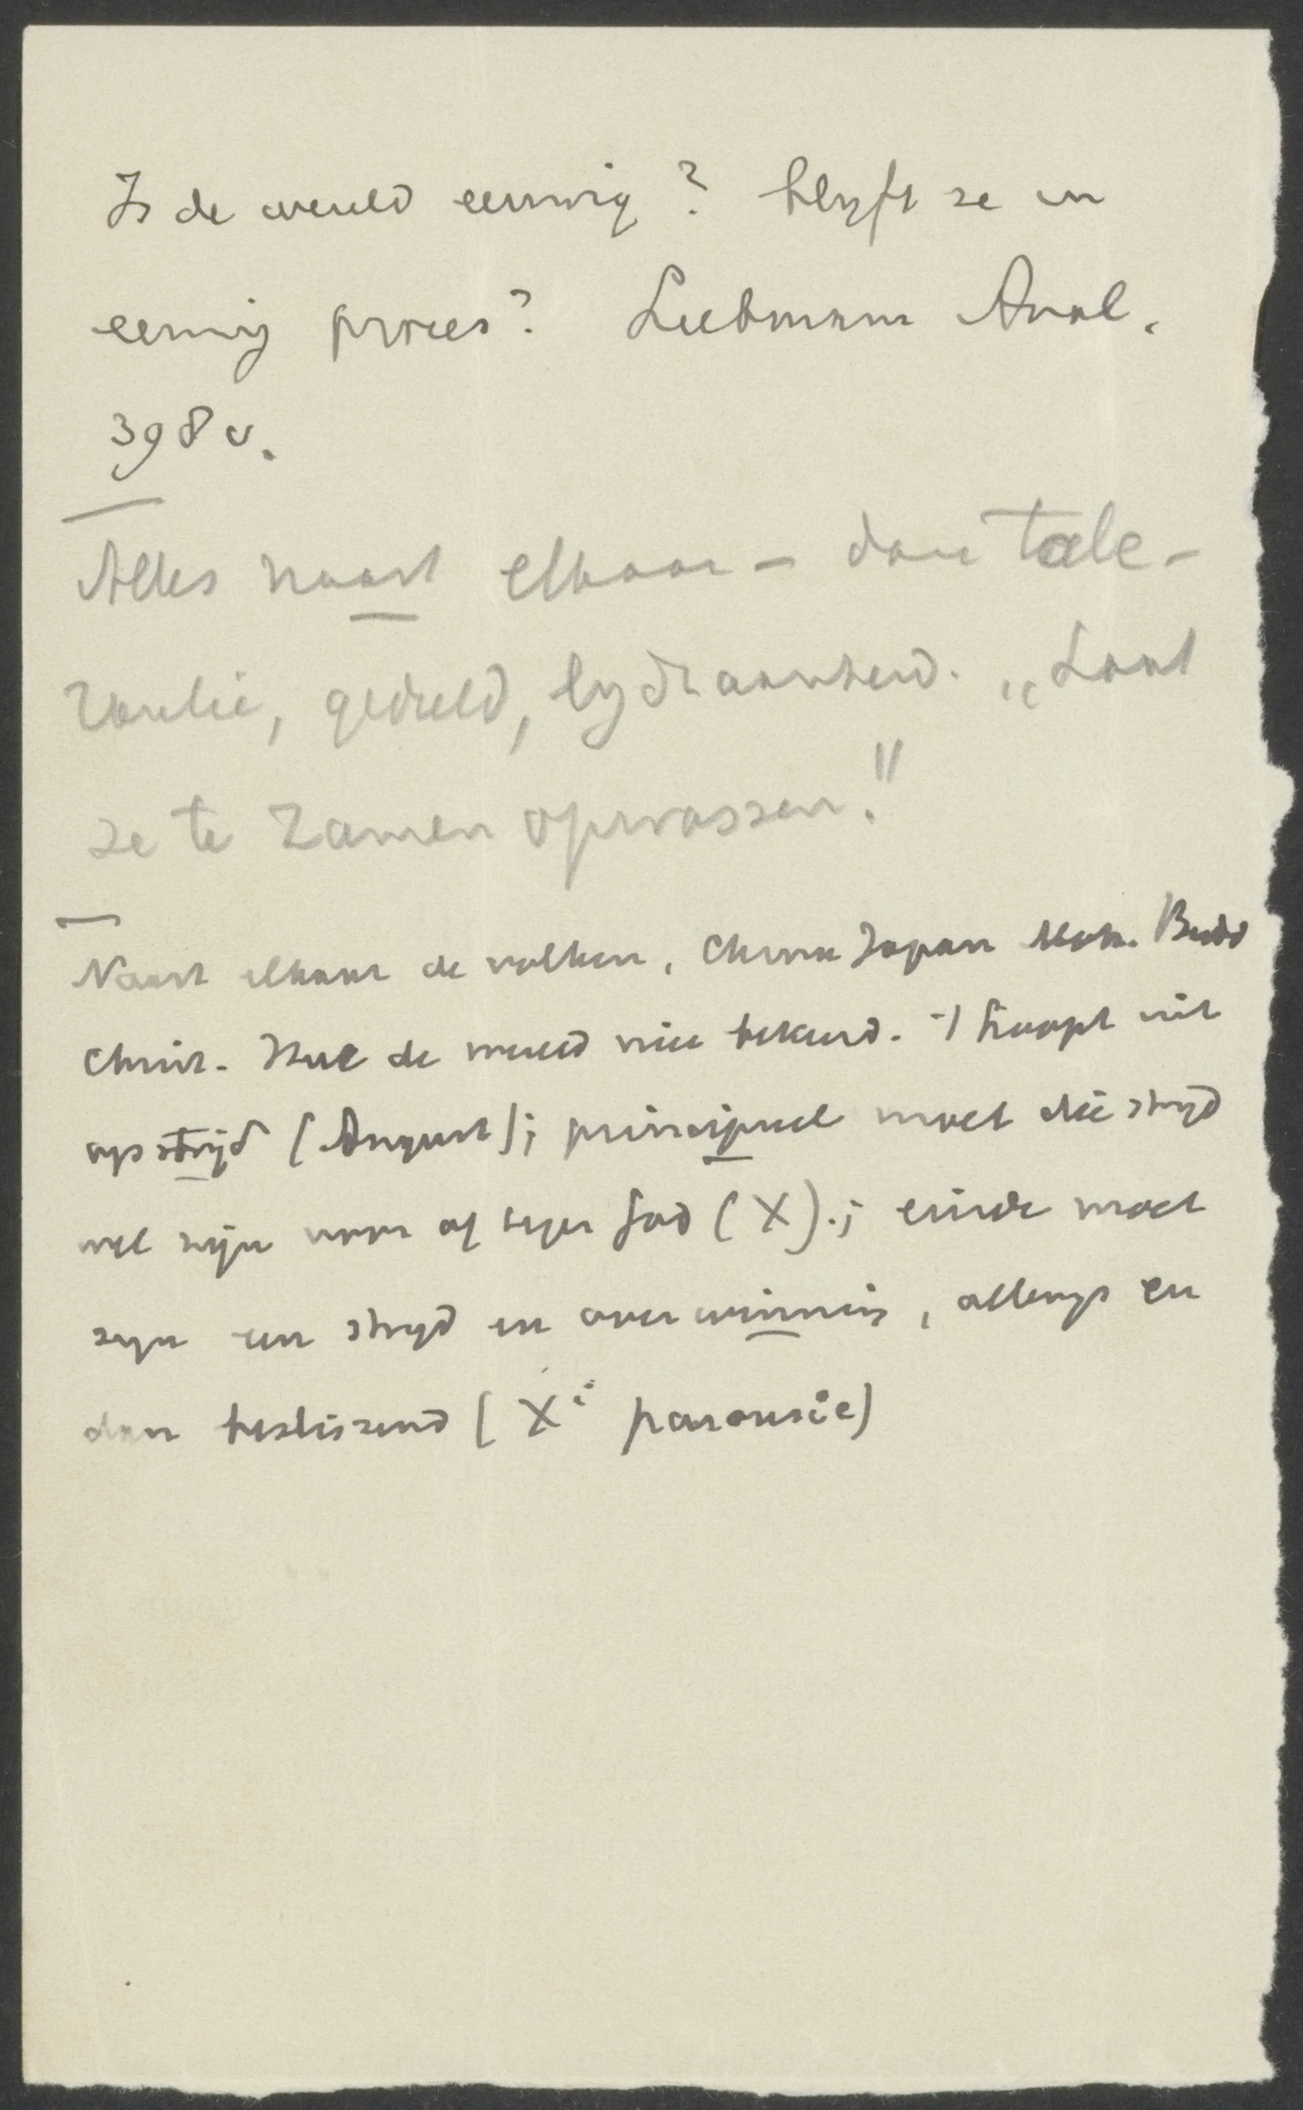 Is de wereld eeuwig? blyft ze in
eeuwig proces? Liebmann Anal.
398 v.
Alles naast elkaar – dan tole-
rantie, geduld, lydzaamheid. „Laat
ze te zamen opwassen."
Naast elkaar de volken, China Japan Moh. Budd
Christ. de wereld niet bekeerd. 't loopt uit
op strijd (August); principieel moet die stryd
wel zijn voor of tegen God (X).; einde moet
zyn een stryd en overwinnin, allengs en
dan beslissend (Xi parousie)